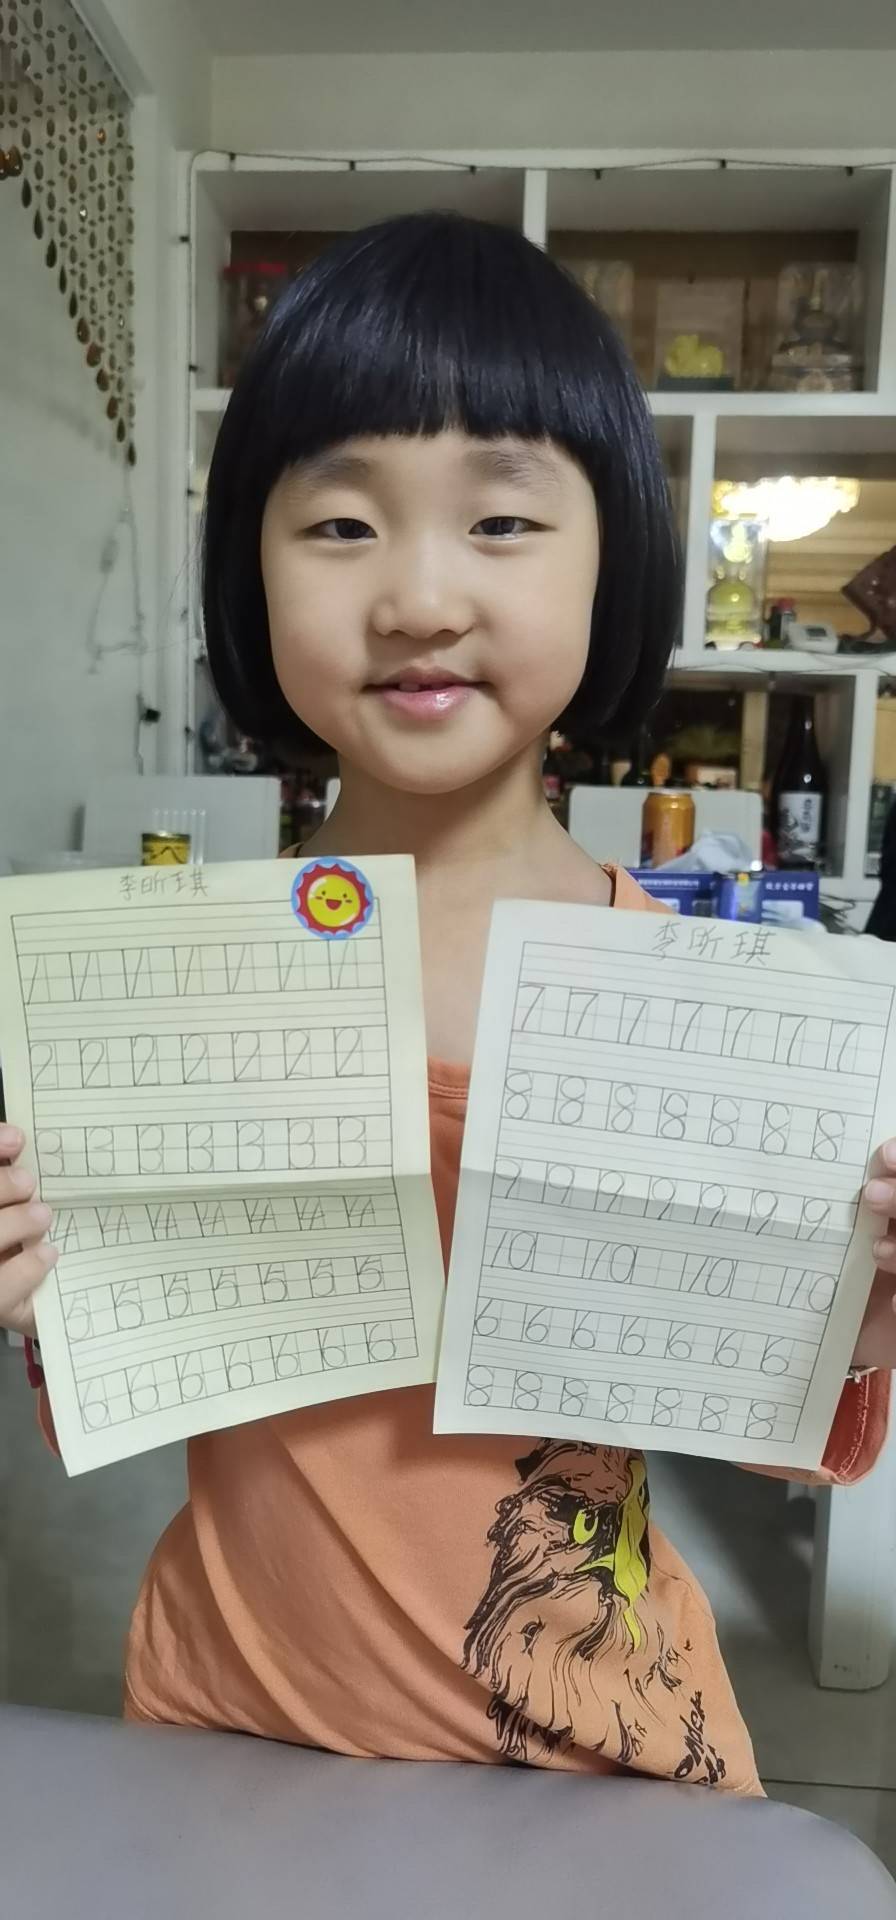 李昕琪
1 1 1 1 1 1 1
2 2 2 2 2 2 2
3 3 3 3 3 3 3
4 4 4 4 4 4 4
5 5 5 5 5 5 5
6 6 6 6 6 6 6
李昕琪
7 7 7 7 7 7 7
8 8 8 8 8 8 8
9 9 9 9 9 9 9
10 10 10 10
6 6 6 6 6 6 6
8 8 8 8 8 8 8